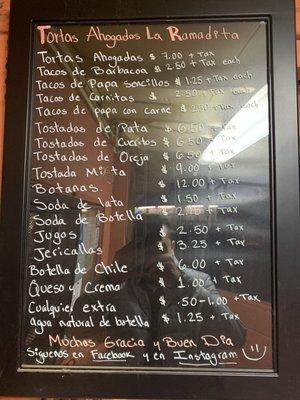 Tortas Ahogadas La Ramadita
Tortas Ahogadas $ 7.00 + Tax
Tacos de Barbacoa $ 2.50 + Tax each
Tacos de Papa Sencillos $ 1.25 + Tax each
Tacos de Carnitas $ 2.50 + Tax each
Tacos de papa con carne $ 2.50 + Tax each
Tostadas de Pata $ 6.50 + Tax
Tostadas de Cueritos $ 6.50 + Tax
Tostadas de Oreja $ 6.50 + Tax
Tostada Mixta $ 9.00 + Tax
Botanas. $ 12.00 + Tax
Soda de lata $ 1.50 + Tax
Soda de Botella $ + Tax
Jugos $ 2.50 + Tax
Jericallas $ 3.25 + Tax
Botella de Chile $ 6.00 + Tax
Queso y Crema $ 1.00 + Tax
Cualquier extra $ .50-1.00 + Tax
agua natural de botella $ 1.25 + Tax
Muchas Gracia y Buen Dia
Siguenos en Facebook y en Instagram